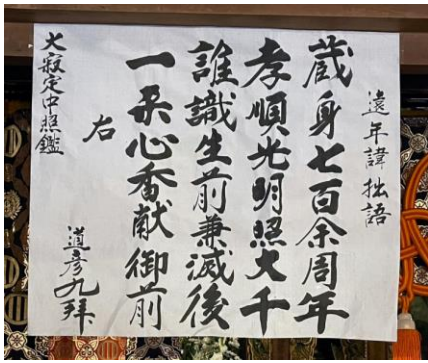 遠年諱拙語
蔵身七百余周年
孝順光明照大千
誰識生前兼滅後
一炷心香献御前
右
大寂定中照鑑
道彦九拝